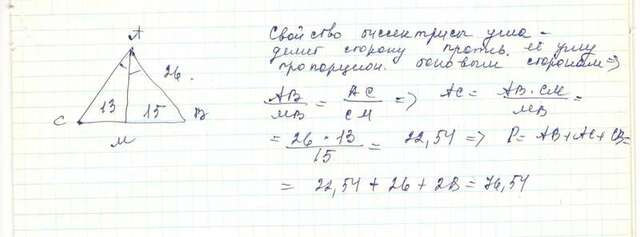 A
26.
13
15
C
B
M
Свойство биссектрисы угла -
делит сторону против. её углу
пропорцион. боковым сторонам =>
AB/MB = AC/CM => AC = AB · CM/MB =
= 26 · 13/15 = 22,54 => P = AB + AC + CB =
= 22,54 + 26 + 28 = 76,54